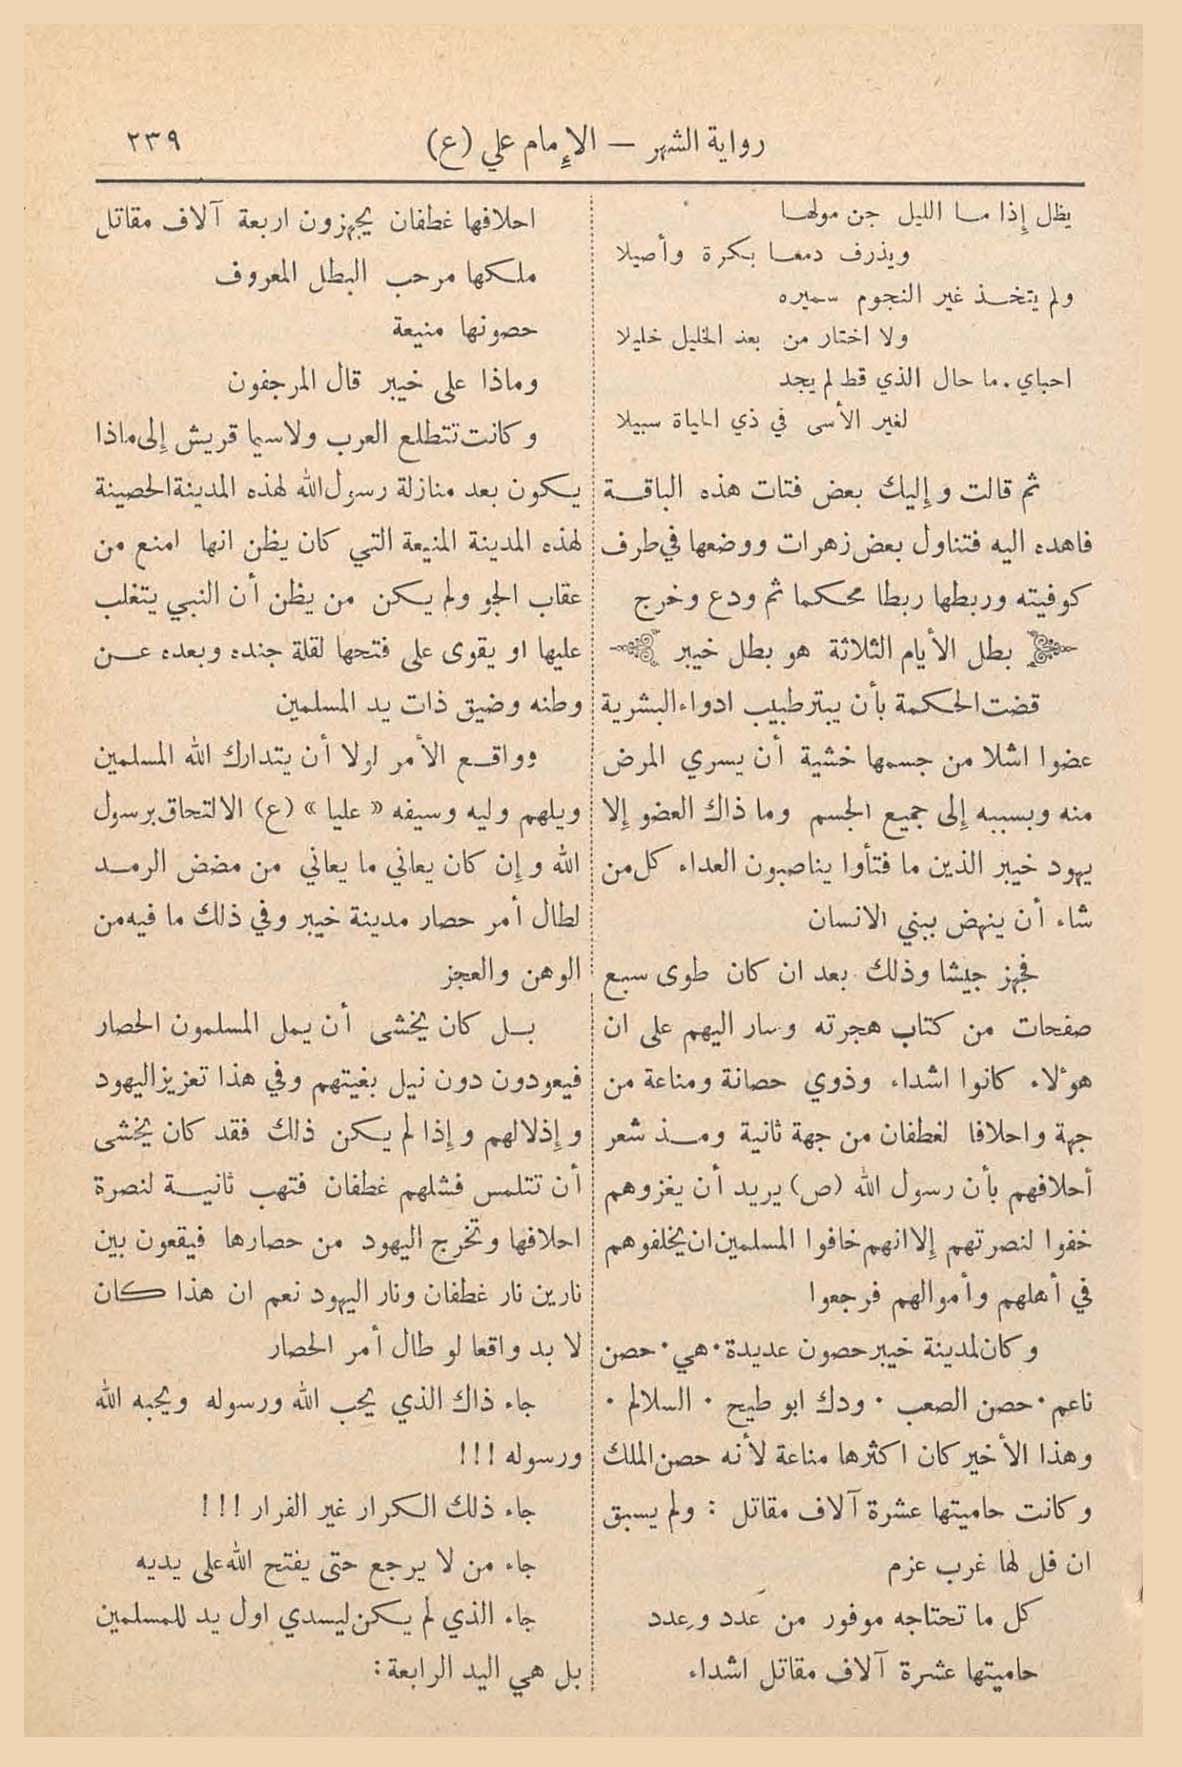 رواية الشهر — الإمام علي (ع)
٢٣٩
يظل إذا ما الليل جن مولها
ويذرف دمعا بكرة وأصيلا
ولم يتخذ غير النجوم سميره
ولا اختار من بعد الخليل خليلا
احباي . ما حال الذي قط لم يجد
لغير الأسى في ذي الحياة سبيلا
ثم قالت وإليك بعض فتات هذه الباقة
فاهده اليه فتناول بعض زهرات ووضعها في طرف
كوفيته وربطها ربطا محكما ثم ودع وخرج
بطل الأيام الثلاثة هو بطل خيبر
قضت الحكمة بأن يبتر طبيب ادواء البشرية
عضوا اشلا من جسمها خشية أن يسري المرض
منه وبسببه إلى جميع الجسم وما ذاك العضو إلا
يهود خيبر الذين ما فتأوا يناصبون العداء كل من
شاء أن ينهض ببني الانسان
فجهز جيشا وذلك بعد ان كان طوى سبع
صفحات من كتاب هجرته وسار اليهم على ان
هؤلاء كانوا اشداء وذوي حصانة ومناعة من
جهة واحلافا لغطفان من جهة ثانية ومذ شعر
أحلافهم بأن رسول الله (ص) يريد أن يغزوهم
خفوا لنصرتهم إلا انهم خافوا المسلمين ان يخلفوهم
في أهلهم وأموالهم فرجعوا
وكان لمدينة خيبر حصون عديدة · هي · حصن
ناعم · حصن الصعب · ودك ابو طيح · السلالم ·
وهذا الأخير كان اكثرها مناعة لأنه حصن الملك
وكانت حاميتها عشرة آلاف مقاتل : ولم يسبق
ان فل لها غرب عزم
كل ما تحتاجه موفور من عَدد وعِدد
حاميتها عشرة آلاف مقاتل اشداء
احلافها غطفان يجهزون اربعة آلاف مقاتل
ملكها مرحب البطل المعروف
حصونها منيعة
وماذا على خيبر قال المرجفون
وكانت تتطلع العرب ولاسيما قريش إلى ماذا
يكون بعد منازلة رسول الله لهذه المدينة الحصينة
لهذه المدينة المنيعة التي كان يظن انها امنع من
عقاب الجو ولم يكن من يظن أن النبي يتغلب
عليها او يقوى على فتحها لقلة جنده وبعده عن
وطنه وضيق ذات يد المسلمين
وواقع الأمر لولا أن يتدارك الله المسلمين
ويلهم وليه وسيفه « عليا » (ع) الالتحاق برسول
الله وإن كان يعاني ما يعاني من مضض الرمد
لطال أمر حصار مدينة خيبر وفي ذلك ما فيه من
الوهن والعجز
بل كان يخشى أن يمل المسلمون الحصار
فيعودون دون نيل بغيتهم وفي هذا تعزيز اليهود
وإذلالهم وإذا لم يكن ذلك فقد كان يخشى
أن تتلمس فشلهم غطفان فتهب ثانية لنصرة
احلافها وتخرج اليهود من حصارها فيقعون بين
نارين نار غطفان ونار اليهود نعم ان هذا كان
لا بد واقعا لو طال أمر الحصار
جاء ذاك الذي يحب الله ورسوله ويحبه الله
ورسوله !!!
جاء ذلك الكرار غير الفرار !!!
جاء من لا يرجع حتى يفتح الله على يديه
جاء الذي لم يكن ليسدي اول يد للمسلمين
بل هي اليد الرابعة :